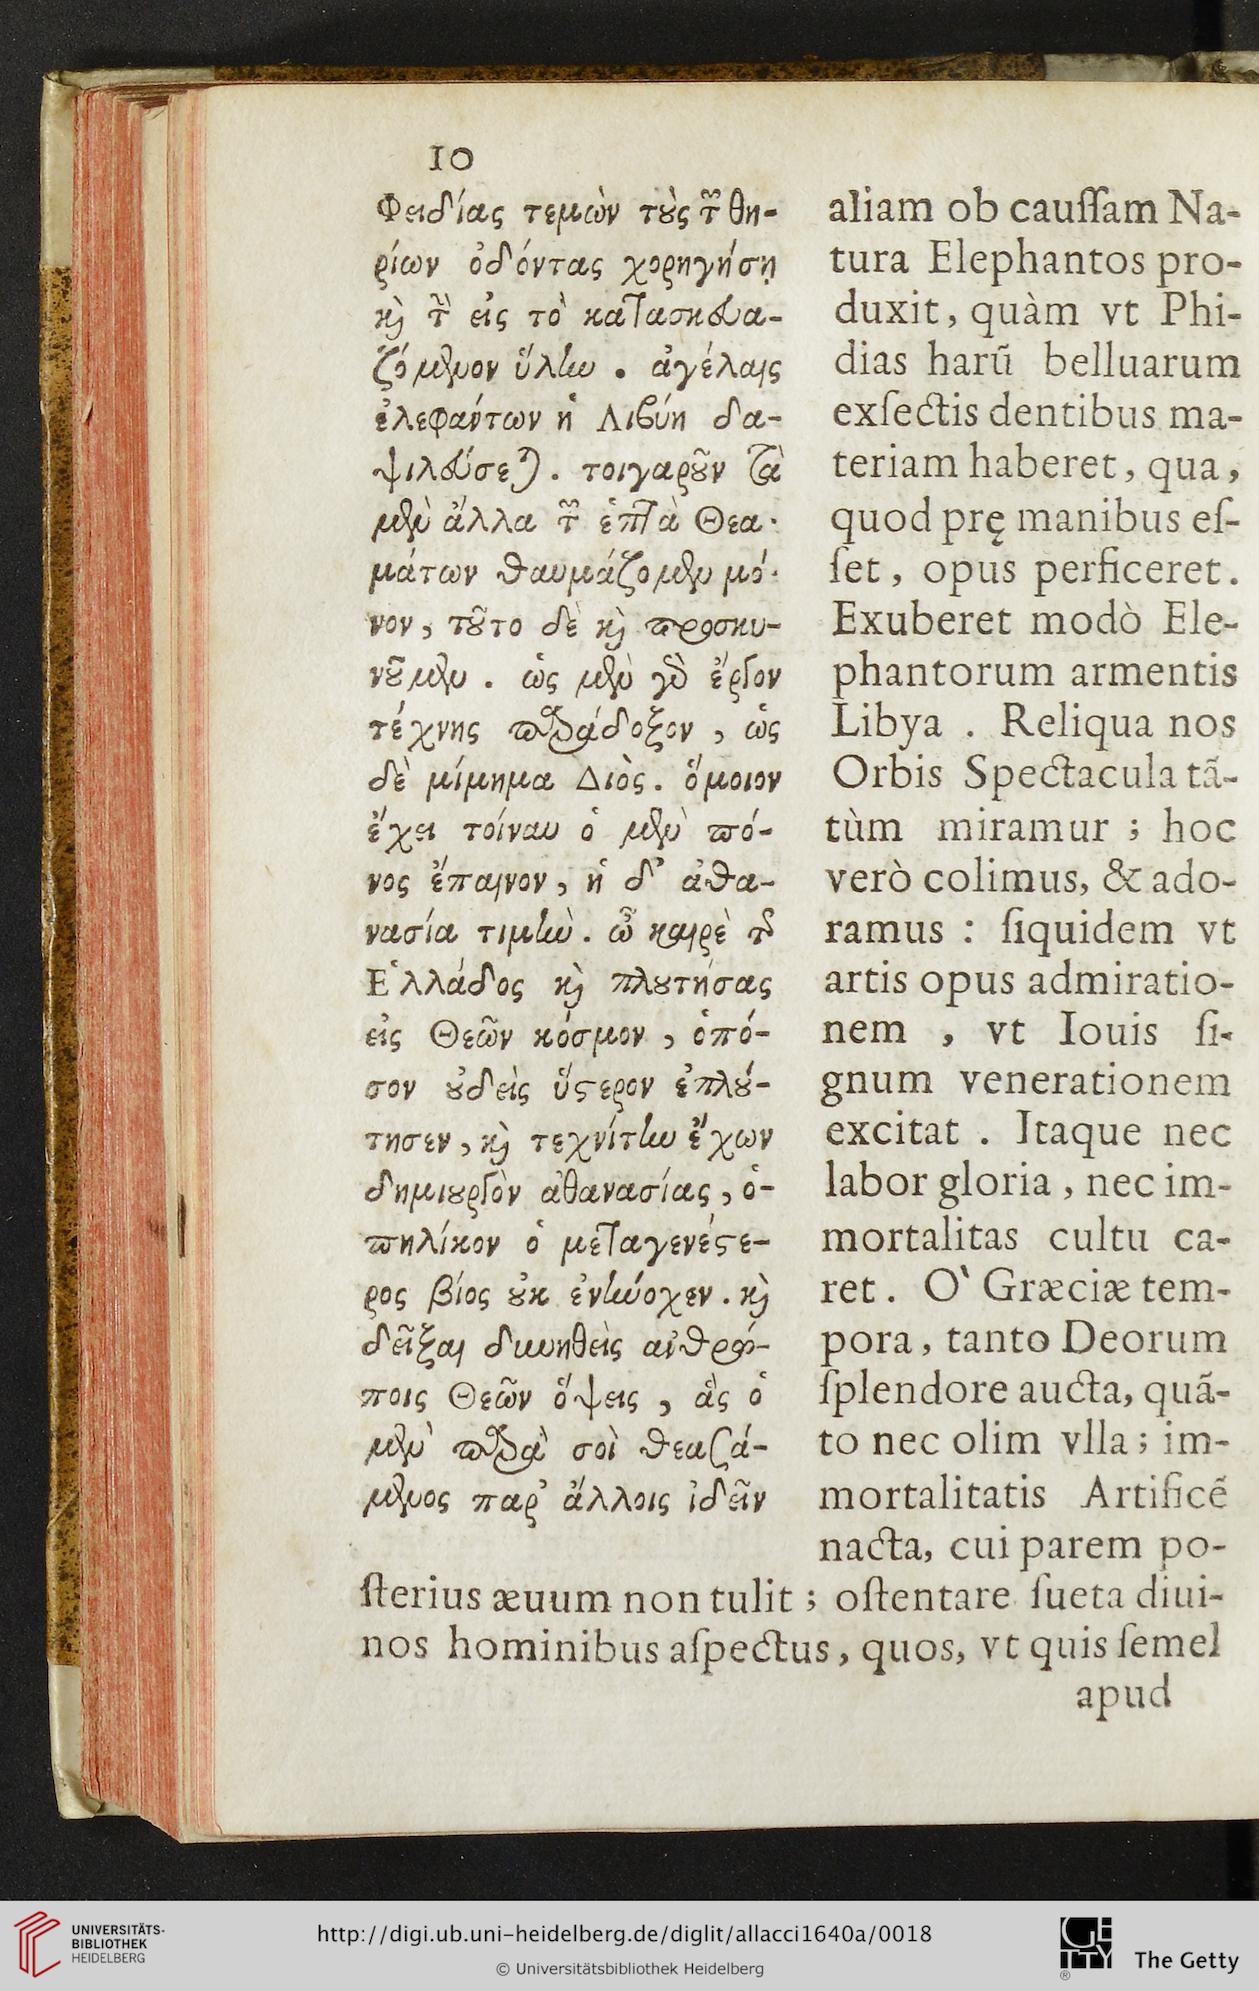 10
Φειδίας τεμὼν τοὺς τῶν θη-
ρίων ὀδόντας χορηγήσῃ
καὶ τὴν εἰς τὸ κατασκευα-
ζόμενον ὕλην . ἀγέλαις
ἐλεφάντων ἡ Λιβύη δα-
ψιλεύσεται . τοιγαροῦν τὰ
μὲν ἄλλα τῶν ἑπτὰ Θεα-
μάτων θαυμάζομεν μό-
νον , τοῦτο δὲ καὶ προσκυ-
νοῦμεν . ὡς μὲν γὰρ ἔργον
τέχνης παράδοξον , ὡς
δὲ μίμημα Διὸς . ὅμοιον
ἔχει τοίνυν ὁ μὲν πό-
νος ἔπαινον , ἡ δ' ἀθα-
νασία τιμὴν . ὦ καιρὲ τῆς
Ἑλλάδος καὶ πλουτήσας
εἰς Θεῶν κόσμον , ὁπό-
σον οὐδεὶς ὕστερον ἐπλού-
τησεν , καὶ τεχνίτην ἔχων
δημιουργὸν ἀθανασίας , ὁ-
πηλίκον ὁ μεταγενέστε-
ρος βίος οὐκ ἐνήνοχεν . καὶ
δεῖξαι δυνηθεὶς ἀνθρώ-
ποις Θεῶν ὄψεις , ἃς ὁ
μὲν παρὰ σοὶ θεασά-
μενος παρ' ἄλλοις ἰδεῖν
aliam ob cauſſam Na-
tura Elephantos pro-
duxit, quàm vt Phi-
dias harū belluarum
exſectis dentibus ma-
teriam haberet, qua,
quod prę manibus eſ-
ſet, opus perficeret.
Exuberet modò Ele-
phantorum armentis
Libya . Reliqua nos
Orbis Spectacula tā-
tùm miramur ; hoc
verò colimus, & ado-
ramus : ſiquidem vt
artis opus admiratio-
nem , vt Iouis ſi-
gnum venerationem
excitat . Itaque nec
labor gloria , nec im-
mortalitas cultu ca-
ret . O' Græciæ tem-
pora, tanto Deorum
ſplendore aucta, quā-
to nec olim vlla ; im-
mortalitatis Artificē
nacta, cui parem po-
ſterius æuum non tulit ; oſtentare ſueta diui-
nos hominibus aſpectus, quos, vt quis ſemel
apud
UNIVERSITÄTS-
BIBLIOTHEK
HEIDELBERG
http://digi.ub.uni-heidelberg.de/diglit/allacci1640a/0018
© Universitätsbibliothek Heidelberg
GETTY
The Getty